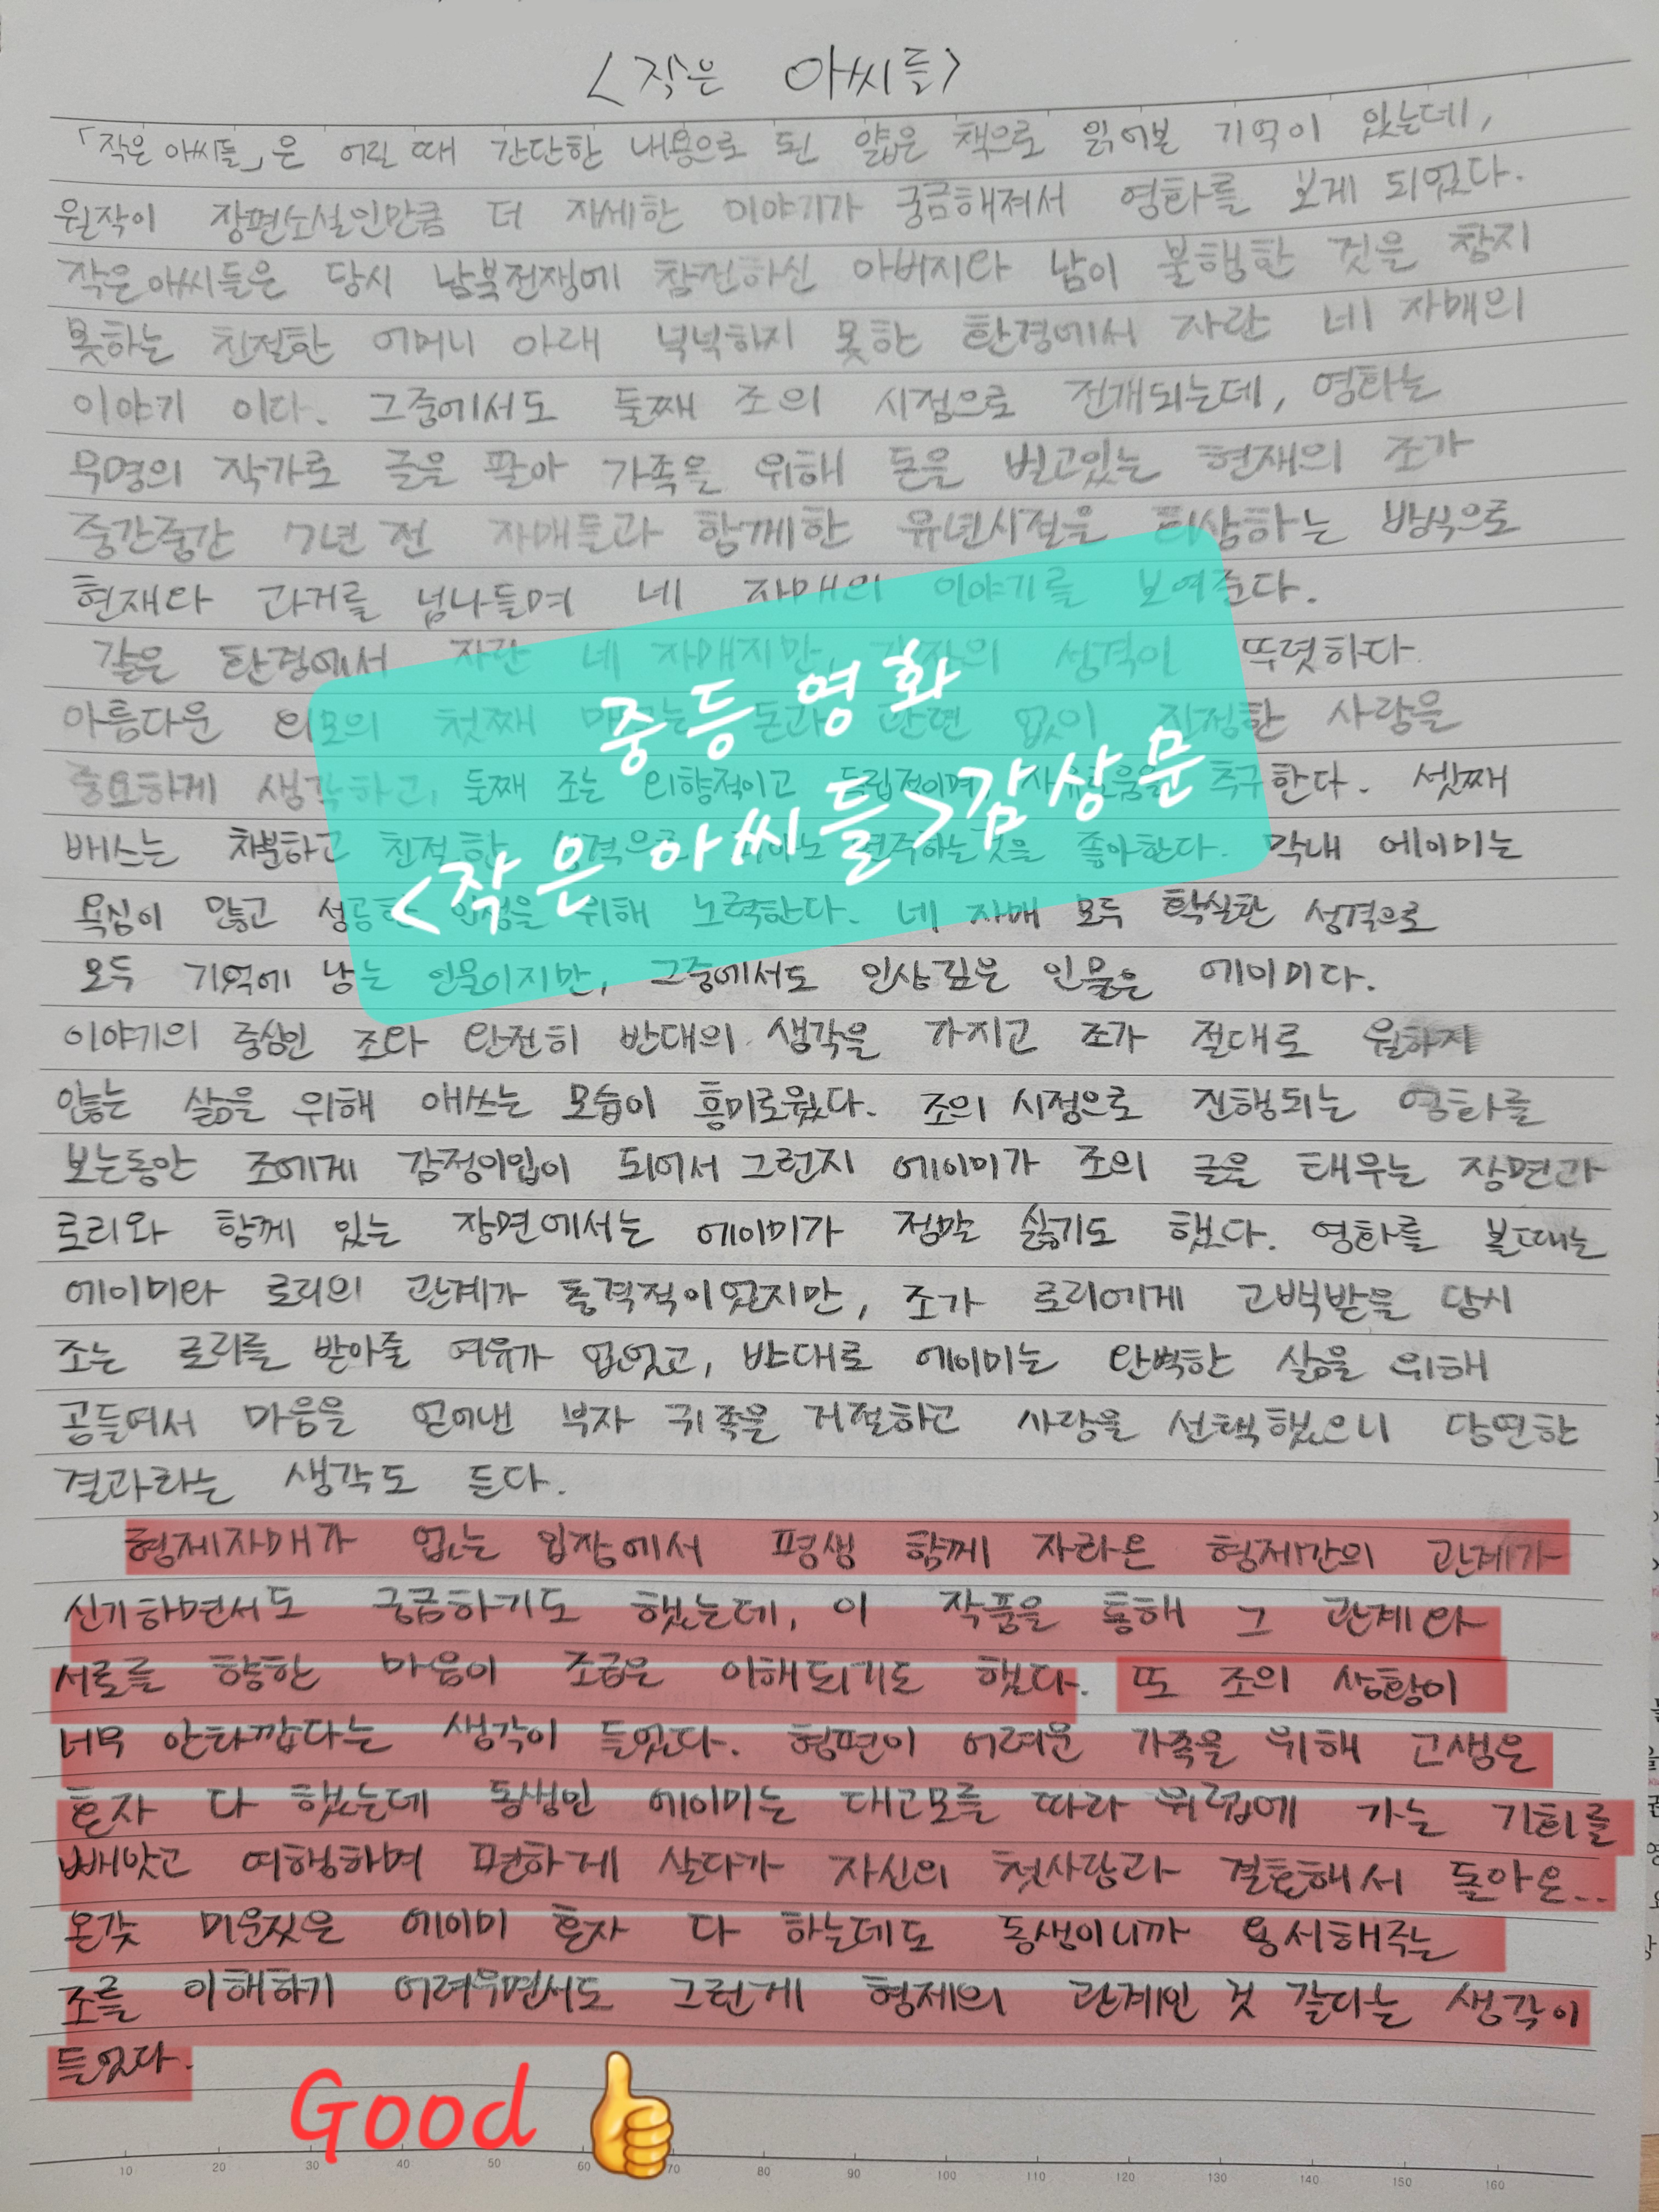 <작은 아씨들>
「작은 아씨들」은 어릴 때 간단한 내용으로 된 얇은 책으로 읽어본 기억이 있는데,
원작이 장편소설인만큼 더 자세한 이야기가 궁금해져서 영화를 보게 되었다.
작은아씨들은 당시 남북전쟁에 참전하신 아버지와 남이 불행한 것을 참지
못하는 친절한 어머니 아래 넉넉하지 못한 환경에서 자란 네 자매의
이야기 이다. 그중에서도 둘째 조의 시점으로 전개되는데, 영화는
무명의 작가로 글을 팔아 가족을 위해 돈을 벌고있는 현재의 조가
중간중간 7년 전 자매들과 함께한 유년시절을 회상하는 방식으로
현재와 과거를 넘나들며 네 자매의 이야기를 보여준다.
같은 환경에서 자란 네 자매지만, 각자의 성격이 뚜렷하다.
아름다운 외모의 첫째 메그는 돈과 관련 없이 진정한 사랑을
중요하게 생각하고, 둘째 조는 외향적이고 독립적이며, 자유로움을 추구한다. 셋째
베스는 차분하고 친절한 성격으로 피아노 연주하는것을 좋아한다. 막내 에이미는
욕심이 많고 성공한 인생을 위해 노력한다. 네 자매 모두 확실한 성격으로
모두 기억에 남는 인물이지만, 그중에서도 인상깊은 인물은 에이미다.
이야기의 중심인 조와 완전히 반대의 생각을 가지고 조가 절대로 원하지
않는 삶을 위해 애쓰는 모습이 흥미로웠다. 조의 시점으로 진행되는 영화를
보는동안 조에게 감정이입이 되어서 그런지 에이미가 조의 글을 태우는 장면과
로리와 함께 있는 장면에서는 에이미가 정말 싫기도 했다. 영화를 볼때는
에이미와 로리의 관계가 충격적이었지만, 조가 로리에게 고백받을 당시
조는 로리를 받아줄 여유가 없었고, 반대로 에이미는 완벽한 삶을 위해
공들여서 마음을 얻어낸 부자 귀족을 거절하고 사랑을 선택했으니 당연한
결과라는 생각도 든다.
형제자매가 없는 입장에서 평생 함께 자라온 형제간의 관계가
신기하면서도 궁금하기도 했는데, 이 작품을 통해 그 관계와
서로를 향한 마음이 조금은 이해되기도 했다. 또 조의 상황이
너무 안타깝다는 생각이 들었다. 형편이 어려운 가족을 위해 고생은
혼자 다 했는데 동생인 에이미는 대고모를 따라 유럽에 가는 기회를
빼앗고 여행하며 편하게 살다가 자신의 첫사랑과 결혼해서 돌아온...
온갖 미운짓은 에이미 혼자 다 하는데도 동생이니까 용서해주는
조를 이해하기 어려우면서도 그런게 형제의 관계인 것 같다는 생각이
들었다.
중등 영화
<작은 아씨들>감상문
Good
10 20 30 40 50 60 70 80 90 100 110 120 130 140 150 160